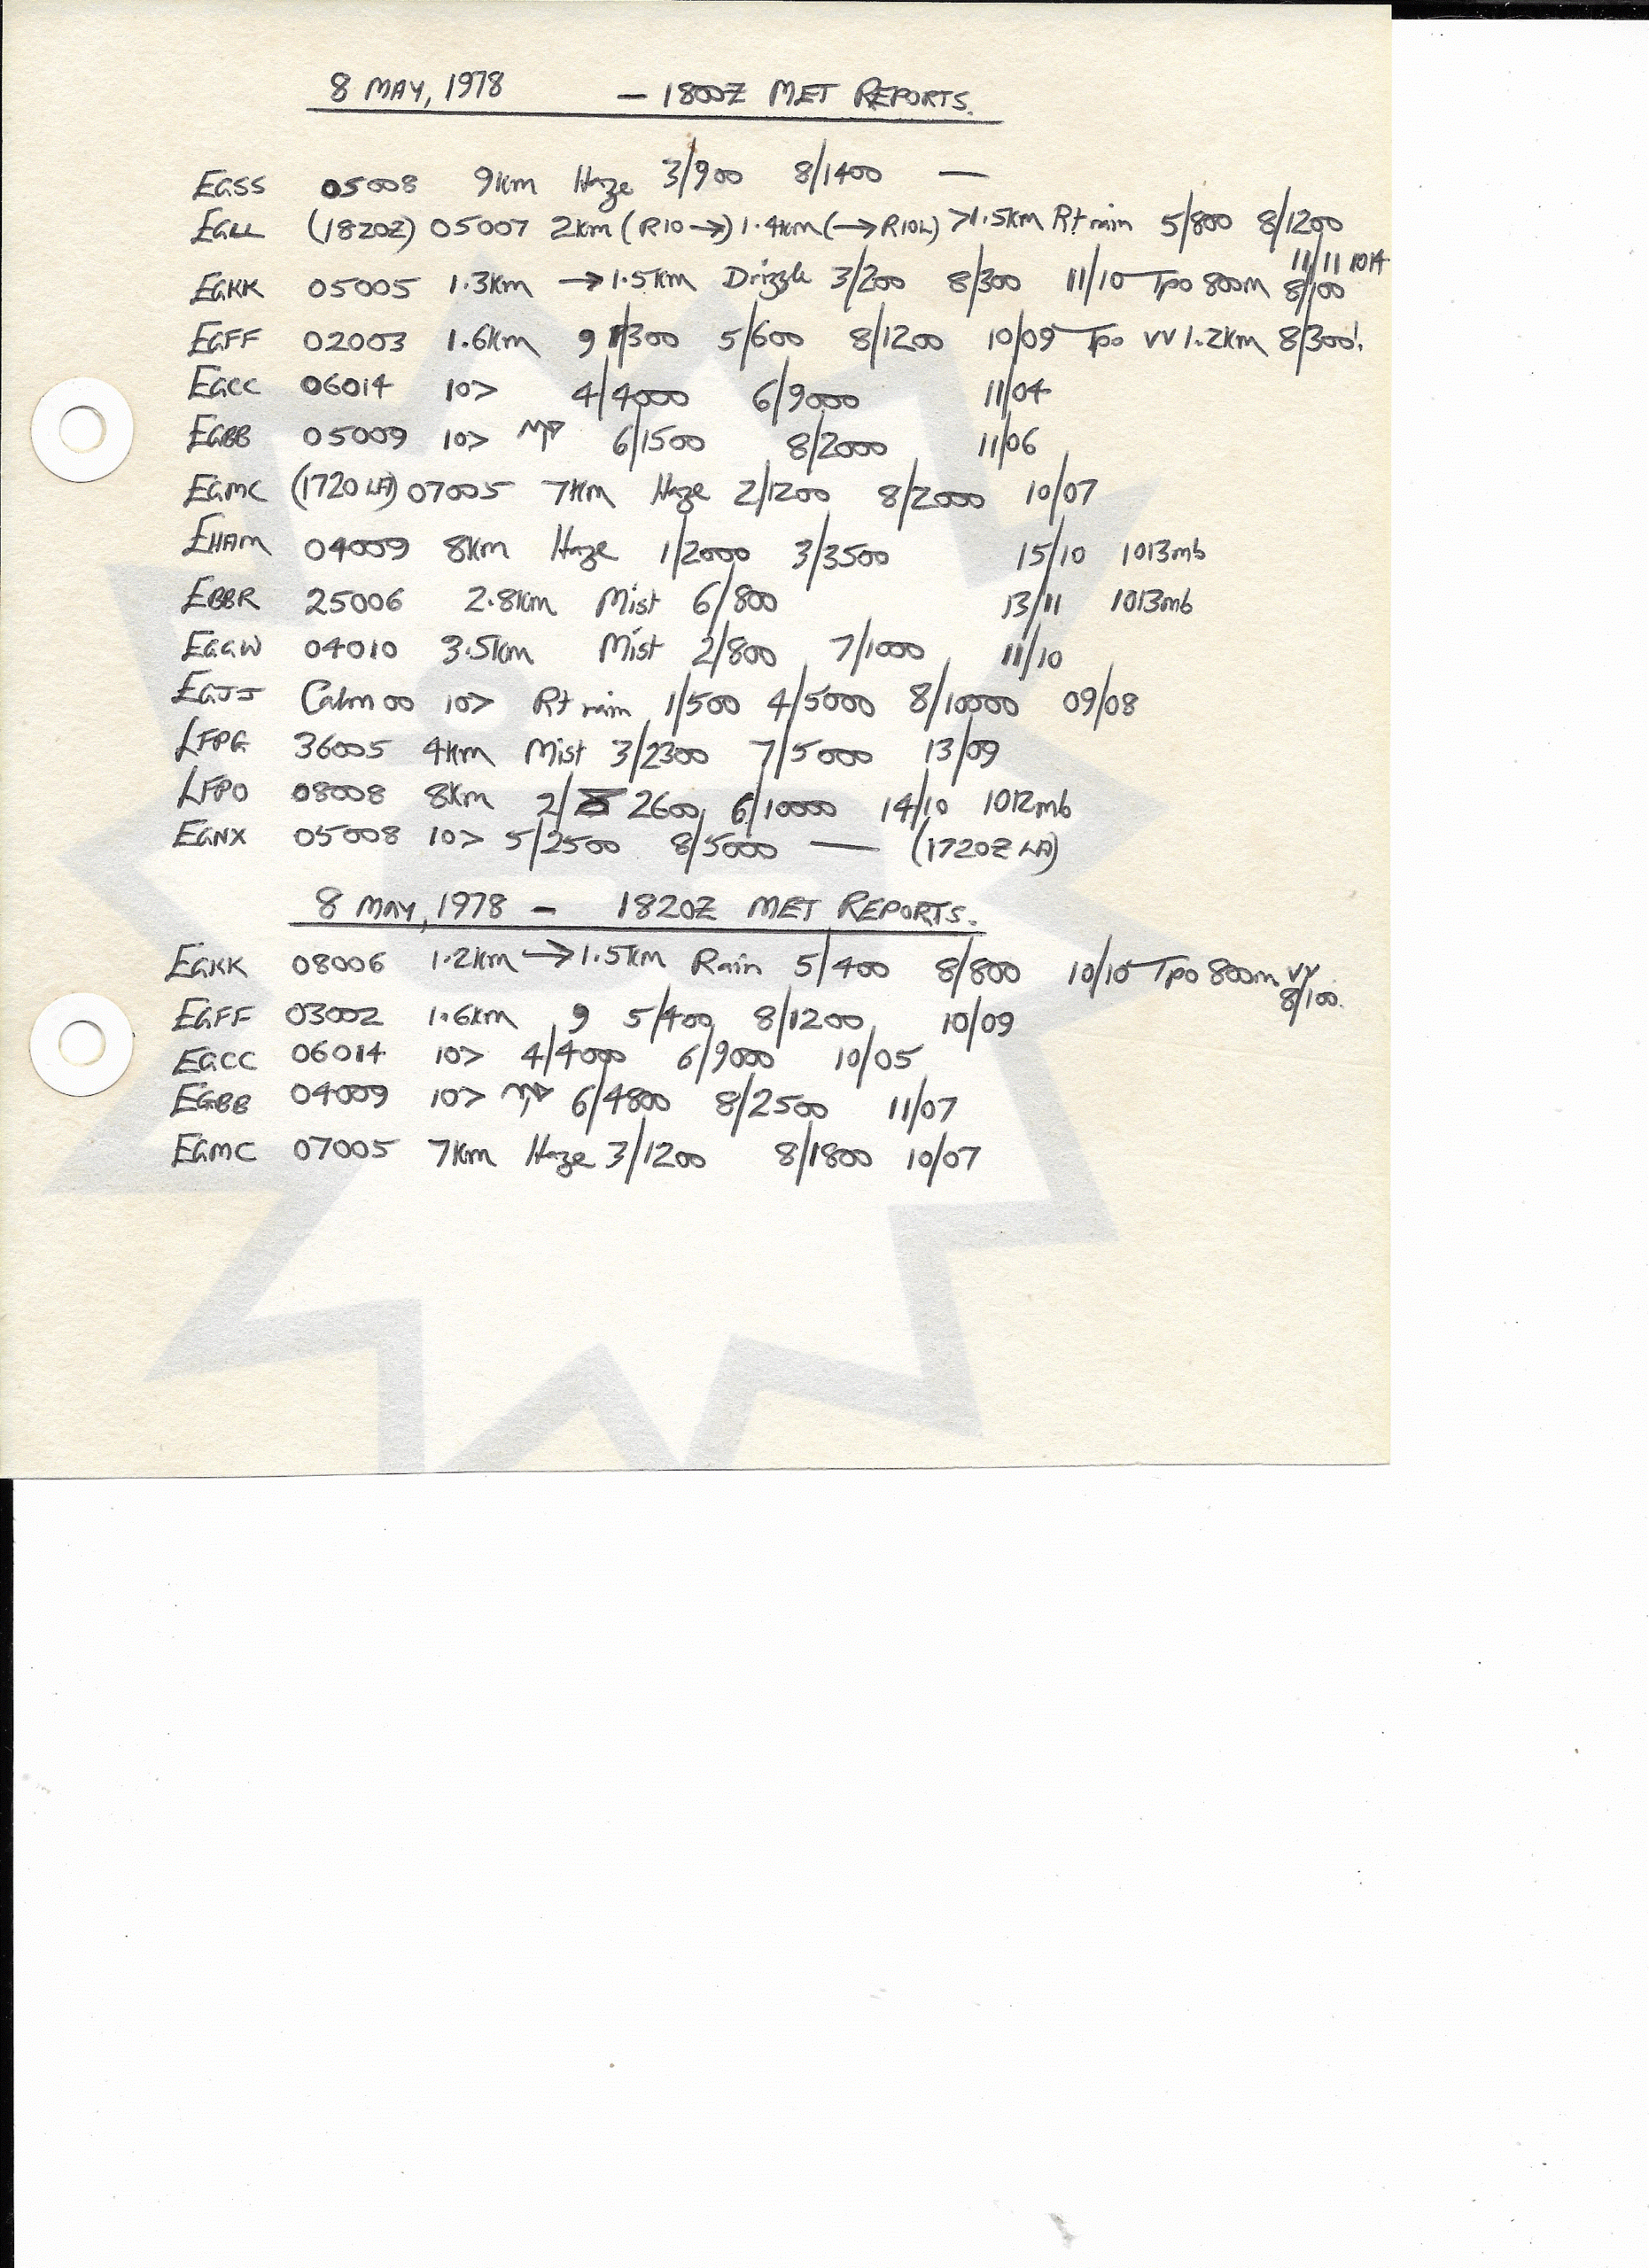 8 MAY, 1978 — 1800Z MET REPORTS.
EGSS 05008 9km Haze 3/900 8/1400 —
EGLL (1820Z) 05007 2km (R10 →) 1.4km (→ R10L) >1.5km Rt rain 5/800 8/1200
11/11 1014
EGKK 05005 1.3km → 1.5km Drizzle 3/200 8/300 11/10 Tpo 800m 8/100
EGFF 02003 1.6km 9 1/300 5/600 8/1200 10/09 Tpo VV 1.2km 8/300'.
EGCC 06014 10> 4/4000 6/9000 11/04
EGBB 05009 10> 6/1500 8/2000 11/06
EGMC (1720 LA) 07005 7km Haze 2/1200 8/2000 10/07
EHAM 04009 8km Haze 1/2000 3/3500 15/10 1013mb
EBBR 25006 2.8km Mist 6/800 13/11 1013mb
EGGW 04010 3.5km Mist 2/800 7/1000 11/10
EGJJ Calm 00 10> Rt rain 1/500 4/5000 8/10000 09/08
LFPG 36005 4km Mist 3/2300 7/5000 13/09
LFPO 08008 8km 2/2600 6/10000 14/10 1012mb
EGNX 05008 10> 5/2500 8/5000 — (1720Z LA)
8 MAY, 1978 — 1820Z MET REPORTS.
EGKK 08006 1.2km → 1.5km Rain 5/400 8/800 10/10 Tpo 800m VV
8/100.
EGFF 03002 1.6km 9 5/400 8/1200 10/09
EGCC 06014 10> 4/4000 6/9000 10/05
EGBB 04009 10> 6/4800 8/2500 11/07
EGMC 07005 7km Haze 3/1200 8/1800 10/07